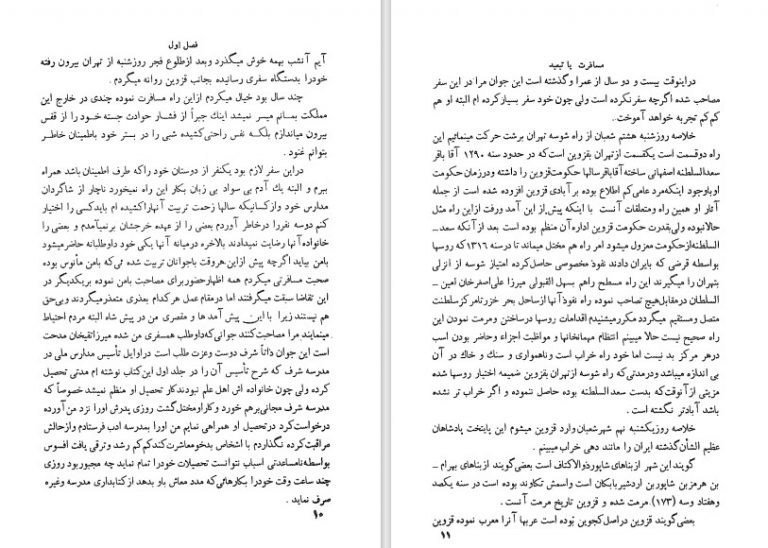 فصل اول
آیم آنشب بهمه خوش میگذرد وبعد ازطلوع فجر روزشنبه از تهران بیرون رفته
خودرا بدستگاه سفری رسانیده بجانب قزوین روانه میگردم .
چند سال بود خیال میکردم ازاین راه مسافرت نموده چندی در خارج این
مملکت بمانم میسر نمیشد اینك جبراً از فشار حوادث جسته خود را از قفس
بیرون میاندازم بلکه نفس راحتی کشیده شبی را در بستر خود باطمینان خاطر
بتوانم غنود .
دراین سفر لازم بود یکنفر از دوستان خود راکه طرف اطمینان باشد همراه
ببرم و البته یك آدم بی سواد بی زبان بکار این راه نمیخورد ناچار از شاگردان
مدارس خود وازکسانیکه سالها زحمت تربیت آنهاراکشیده ام بایدکسی را اختیار
کنم دوسه نفررا درخاطر آوردم بعضی را از عهده خرجشان برنمیآمدم و بعضی را
خانواده آنها رضایت نمیدادند بالاخره درمیانه آنها یکی خود داوطلبانه حاضرمیشود
بامن بیاید اگرچه پیش ازاین هروقت باجوانان تربیت شده ئی که بامن مأنوس بوده
صحبت مسافرتی میکردم همه اظهارحضوربرای مصاحبت بامن نموده بریکدیگر در
این تقاضا سبقت میگرفتند اما درمقام عمل هرکدام بعذری متعذرمیگردند وبی حق
هم نیستند زیرا با این پیش آمد ها و مقصری من در پیش شاه البته مردم احتیاط
مینمایند مرا مصاحبت کنند جوانی که داوطلب همسفری من شده میرزاتقیخان مدحت
است این جوان ذاتاً شرف دوست وعزت طلب است دراوایل تأسیس مدارس ملی در
مدرسه شرف که شرح تأسیس آن را در جلد اول این کتاب نوشته ام مدتی تحصیل
کرده ولی چون خانواده اش اهل علم نبودندکار تحصیل او منظم نمیشد خصوصاً که
مدرسه شرف مجانی برهم خورد وکاراو مختل گشت روزی پدرش اورا نزد من آورده
درخواست کرد درتحصیل او همراهی نمایم من اورا بمدرسه ادب فرستادم وازحالش
مراقبت کرده نگذاردم با اشخاص بدخومعاشرت کندکم کم رشد وترقی یافت افسوس
بواسطه نامساعدتی اسباب نتوانست تحصیلات خودرا تمام نماید چه مجبوربود روزی
چند ساعت وقت خودرا بکارهائی که مدد معاش باو بدهد از کتابداری مدرسه وغیره
صرف نماید .
۱۰
مسافرت یا تبعید
دراینوقت بیست و دو سال از عمرا وگذشته است این جوان مرا در این سفر
مصاحب شده اگرچه سفر نکرده است ولی چون خود سفر بسیارکرده ام البته او هم
کم کم تجربه خواهد آموخت .
خلاصه روزشنبه هشتم شعبان از راه شوسه تهران برشت حرکت مینمائیم این
راه دوقسمت است یکقسمت ازتهران بقزوین است که در حدود سنه ۱۲۹۰ آقا باقر
سعدالسلطنه اصفهانی ساخته آقاباقرسالها حکومت قزوین را داشته ودرزمان حکومت
اوباوجود اینکه مرد عامی کم اطلاع بوده برآبادی قزوین افزوده شده است از جمله
آثار او همین راه ومتعلقات آنست با اینکه پیش از این آمد ورفت ازاین راه مثل
حالانبوده ولی بقدرت حکومت قزوین اداره آن منظم بوده است بعد از آنکه سعد ــ
السلطنه ازحکومت معزول میشود امر راه هم مختل میماند تا درسنه ۱۳۱۶ که روسها
بواسطه قرضی که بایران دادند نفوذ مخصوصی حاصل کرده امتیاز شوسه از انزلی
بتهران را میگیرند این راه مسطح راهم بسهل القبولی میرزا علی اصغرخان امین ــ
السلطان درمقابل هیچ تصاحب نموده راه نفوذ آنها از ساحل بحر خزر تا مرکز سلطنت
متصل ومستقیم میگردد مکررمیشنیدم اقدامات روسها درساختن ومرمت نمودن این
راه صحیح نیست حالا میبینم انتظام مهمانخانها و مواظبت اجزاء وحاضر بودن اسب
درهر مرکز بد نیست اما خود راه خراب است وناهمواری و سنك و خاك در آن
بی اندازه میباشد ودرمدتی که راه شوسه ازتهران بقزوین ضمیمه اختیار روسها شده
مزیتی از آنوقت که بدست سعدالسلطنه بوده حاصل ننموده و اگر خراب تر نشده
باشد آبادتر نگشته است .
خلاصه روزیکشنبه نهم شهرشعبان وارد قزوین میشوم این پایتخت پادشاهان
عظیم الشأن گذشته ایران را مانند دهی خراب میبینم .
گویند این شهر ازبناهای شاپورذوالاکتاف است بعضی گویند از بناهای بهرام ــ
بن هرمزبن شاپوربن اردشیربابکان است واسمش تکاوند بوده است در سنه یکصد
وهفتاد وسه (۱۷۳) مرمت شده و قزوین تاریخ مرمت آنست .
بعضی گویند قزوین دراصل کجوین بوده است عربها آنرا معرب نموده قزوین
۱۱